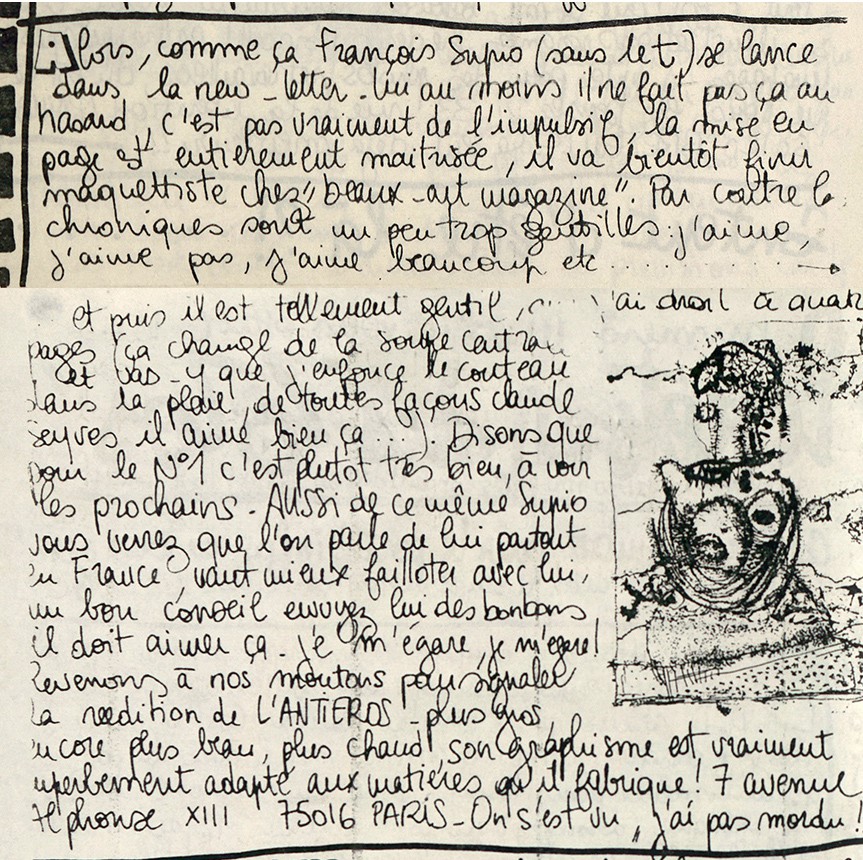 Alors, comme ça François Supio (sans le t) se lance
dans la new-letter. Lui au moins il ne fait pas ça au
hasard, c'est pas vraiment de l'impulsif, la mise en
page est entierement maitrisée, il va bientôt finir
maquettiste chez "beaux-art magazine". Par contre le
chroniques sont un peu trop gentilles: j'aime,
j'aime pas, j'aime beaucoup etc
et puis il est tellement gentil, 'ai droit à quat
pages (ça change de la soupe
et vas-y que j'enfonce le couteau
dans la plaie, de toutes façons claude
Seyves il aime bien ça...). Disons que
pour le N°1 c'est plutot très bien, à voir
les prochains. AUSSI de ce même Supio
vous verrez que l'on parle de lui partout
en France, vaut mieux failloter avec lui,
un bon conseil envoyez lui des bonbons
il doit aimer ça. je m'égare, je m'égare!
Revenons à nos moutons pour signaler
la reedition de L'ANTIEROS - plus gros,
encore plus beau, plus chaud, son graphisme est vraiment
uperbement adapté aux matières qu'il fabrique! 7 avenue
Alphonse XIII 75016 PARIS - On s'est vu, j'ai pas mordu!